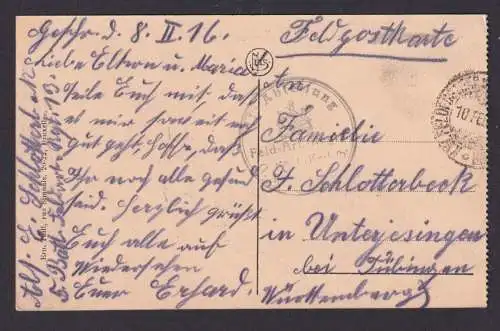 Geschr. d. 8. II 16.
Liebe Eltern u. Maria
Teile Euch mit, daß
es mir soweit noch
gut geht, hoffe, daß
Ihr noch alle gesund
seid. Herzlich grüßt
Euch alle auf
Wiedersehen
Euer Erhard.
Feldpostkarte
An
Familie
J. Schlotterbeck
in Unterjesingen
bei Tübingen
Württemberg
Abteilung
Feld-Art.
10 FE